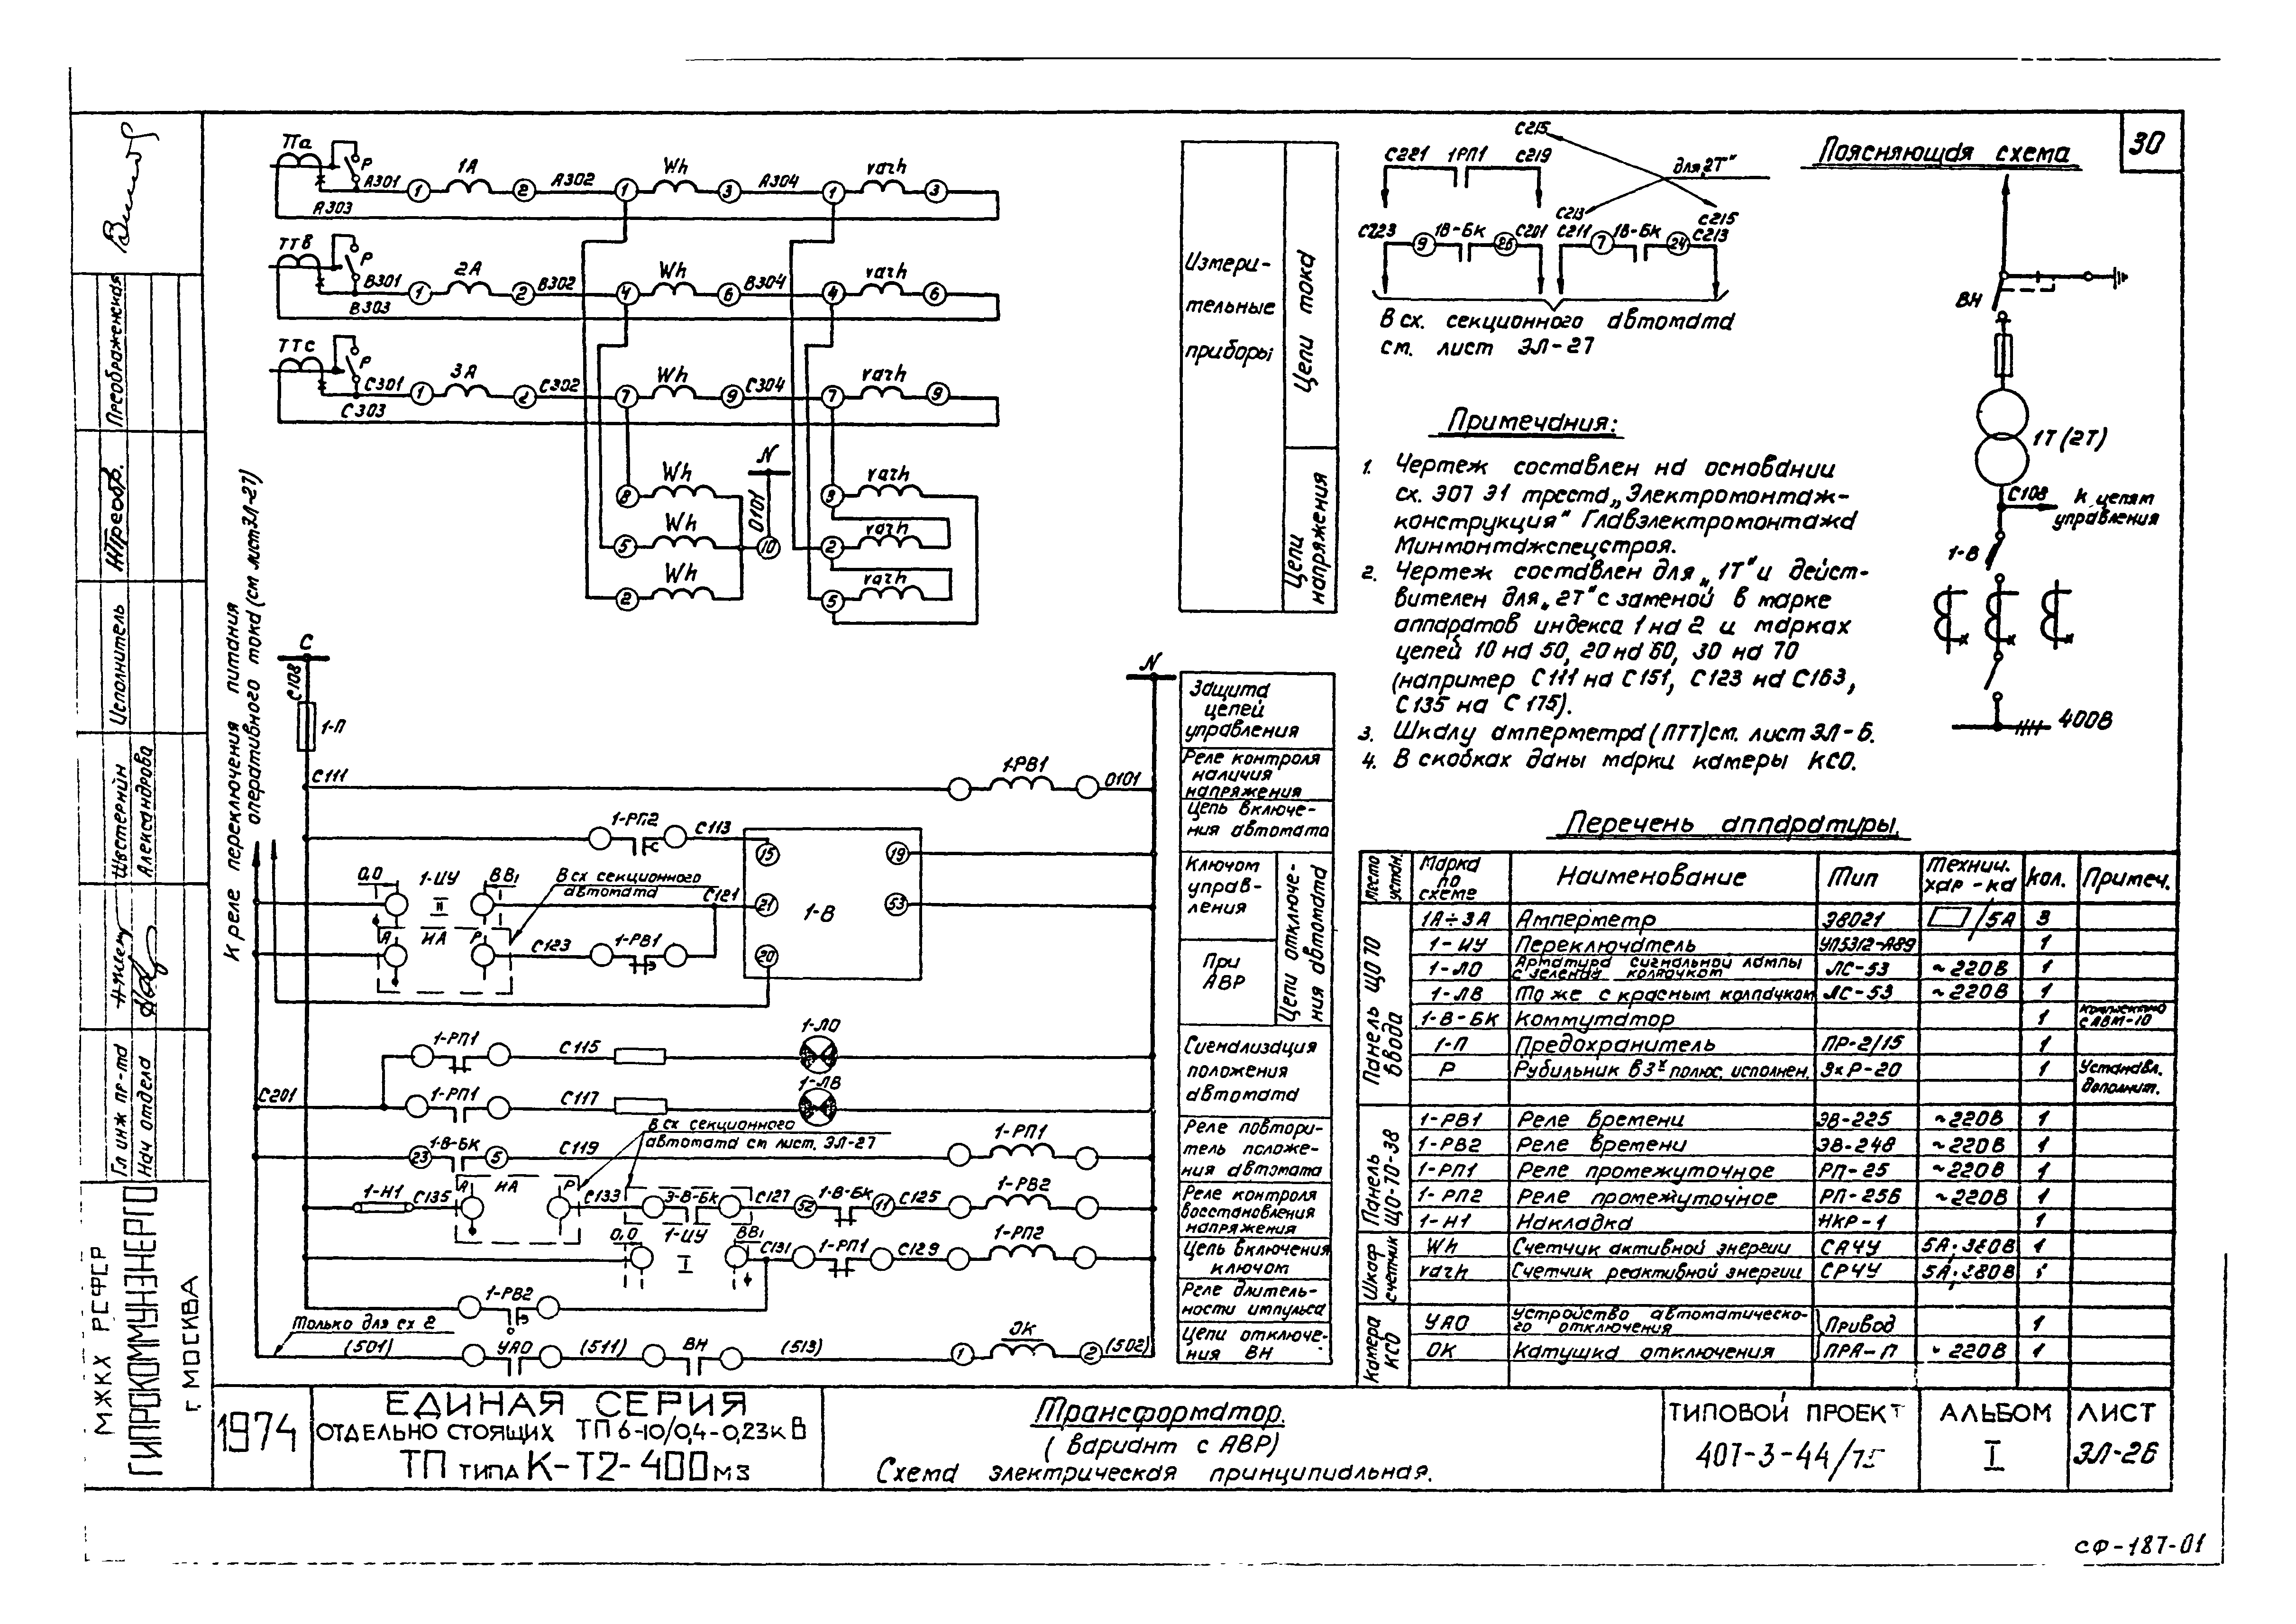 30
Поясняющая схема
ТТа
Р
А301
1
1А
2
А302
1
Wh
3
А304
1
varh
3
А303
ТТв
Р
В301
1
2А
2
В302
4
Wh
6
В304
4
varh
6
В303
ТТс
Р
С301
1
3А
2
С302
7
Wh
9
С304
7
varh
9
С303
8
Wh
5
Wh
2
Wh
10
0101
N
varh
2
varh
5
varh
Измери-
тельные
приборы
Цепи тока
Цепи напряжения
С215
для „2Т"
С221
1РП1
С219
С213
С215
С223
9
1В-БК
26
С201
С211
7
1В-БК
24
С213
В сх. секционного автомата
см. лист ЭЛ-27
ВН
1Т(2Т)
С108
К цепям
управления
1-В
400В
Примечания:
1. Чертеж составлен на основании
сх. Э07 Э1 треста „Электромонтаж-
конструкция" Главэлектромонтажа
Минмонтажспецстроя.
2. Чертеж составлен для „1Т" и дейст-
вителен для „2Т" с заменой в марке
аппаратов индекса 1 на 2 и марках
цепей 10 на 50, 20 на 60, 30 на 70
(например С111 на С151, С123 на С163,
С135 на С175).
3. Шкалу амперметра (ПТТ) см. лист ЭЛ-6.
4. В скобках даны марки камеры КСО.
К реле переключения питания
оперативного тока (см лист ЭЛ-27)
С
С108
1-П
N
С111
1-РВ1
0101
1-РП2
С113
15
19
0,0
1-ЦУ
II
ВВ1
В сх секционного
автомата
С121
21
1-В
53
А
ИА
Р
С123
1-РВ1
20
1-РП1
С115
1-ЛО
С201
1-РП1
С117
1-ЛВ
В сх секционного
автомата см лист. ЭЛ-27
23
1-В-БК
5
С119
1-РП1
1-Н1
С135
А
ИА
Р
С133
3-В-БК
С127
52
1-В-БК
11
С125
1-РВ2
0,0
1-ЦУ
I
ВВ1
С131
1-РП1
С129
1-РП2
1-РВ2
Только для сх 2
(501)
УАО
(511)
ВН
(513)
1
ОК
2
(502)
Защита
цепей
управления
Реле контроля
наличия
напряжения
Цепь включе-
ния автомата
Ключом
управ-
ления
При
АВР
Цепи отключе-
ния автомата
Сигнализация
положения
автомата
Реле повтори-
тель положе-
ния автомата
Реле контроля
восстановления
напряжения
Цепь включения
ключом
Реле длитель-
ности импульса
Цепи отключе-
ния ВН
Перечень аппаратуры.
Место устан.
Марка по схеме
Наименование
Тип
Технич. хар-ка
Кол.
Примеч.
Панель ЩО 70 ввода
1А÷3А Амперметр Э8021 /5А 3
1-ЦУ Переключатель УП5312-А89 1
1-ЛО Арматура сигнальной лампы с зеленым колпачком ЛС-53 ~220В 1
1-ЛВ То же с красным колпачком ЛС-53 ~220В 1
1-В-БК Коммутатор 1 комплектно с АВМ-10
1-П Предохранитель ПР-2/15 1
Р Рубильник в 3х полюс. исполнен. 3хР-20 1 Установл. дополнит.
Панель ЩО-70-38
1-РВ1 Реле времени ЭВ-225 ~220В 1
1-РВ2 Реле времени ЭВ-248 ~220В 1
1-РП1 Реле промежуточное РП-25 ~220В 1
1-РП2 Реле промежуточное РП-256 ~220В 1
1-Н1 Накладка НКР-1 1
Шкаф счетчиков
Wh Счетчик активной энергии САЧУ 5А; 380В 1
varh Счетчик реактивной энергии СРЧУ 5А; 380В 1
Камера КСО
УАО Устройство автоматического отключения Привод 1
ОК Катушка отключения ПРА-П ~220В 1
Преображенская
Исполнитель
Шветернйн
Александрова
Гл инж пр-та
Нач отдела
МЖКХ РСФСР
ГИПРОКОММУНЭНЕРГО
г. МОСКВА
1974
ЕДИНАЯ СЕРИЯ
ОТДЕЛЬНО СТОЯЩИХ ТП 6-10/0,4-0,23кВ
ТП ТИПА К-Т2-400м3
Трансформатор.
(вариант с АВР)
Схема электрическая принципиальная.
ТИПОВОЙ ПРОЕКТ
407-3-44/75
АЛЬБОМ
I
ЛИСТ
ЭЛ-26
СФ-187-01